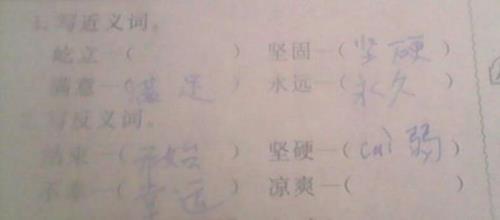 1. 写近义词。
屹立—( ) 坚固—(坚硬)
满意—(满足) 永远—(永久)
2. 写反义词。
结束—(开始) 坚硬—(cuì弱)
不幸—(幸运) 凉爽—( )